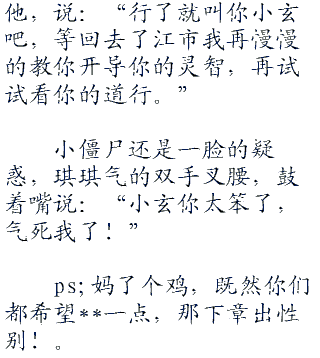 他，说：“行了就叫你小玄
吧，等回去了江市我再慢慢
的教你开导你的灵智，再试
试看你的道行。”
小僵尸还是一脸的疑
惑，琪琪气的双手叉腰，鼓
着嘴说：“小玄你太笨了，
气死我了！”
ps;妈了个鸡，既然你们
都希望**一点，那下章出性
别！。